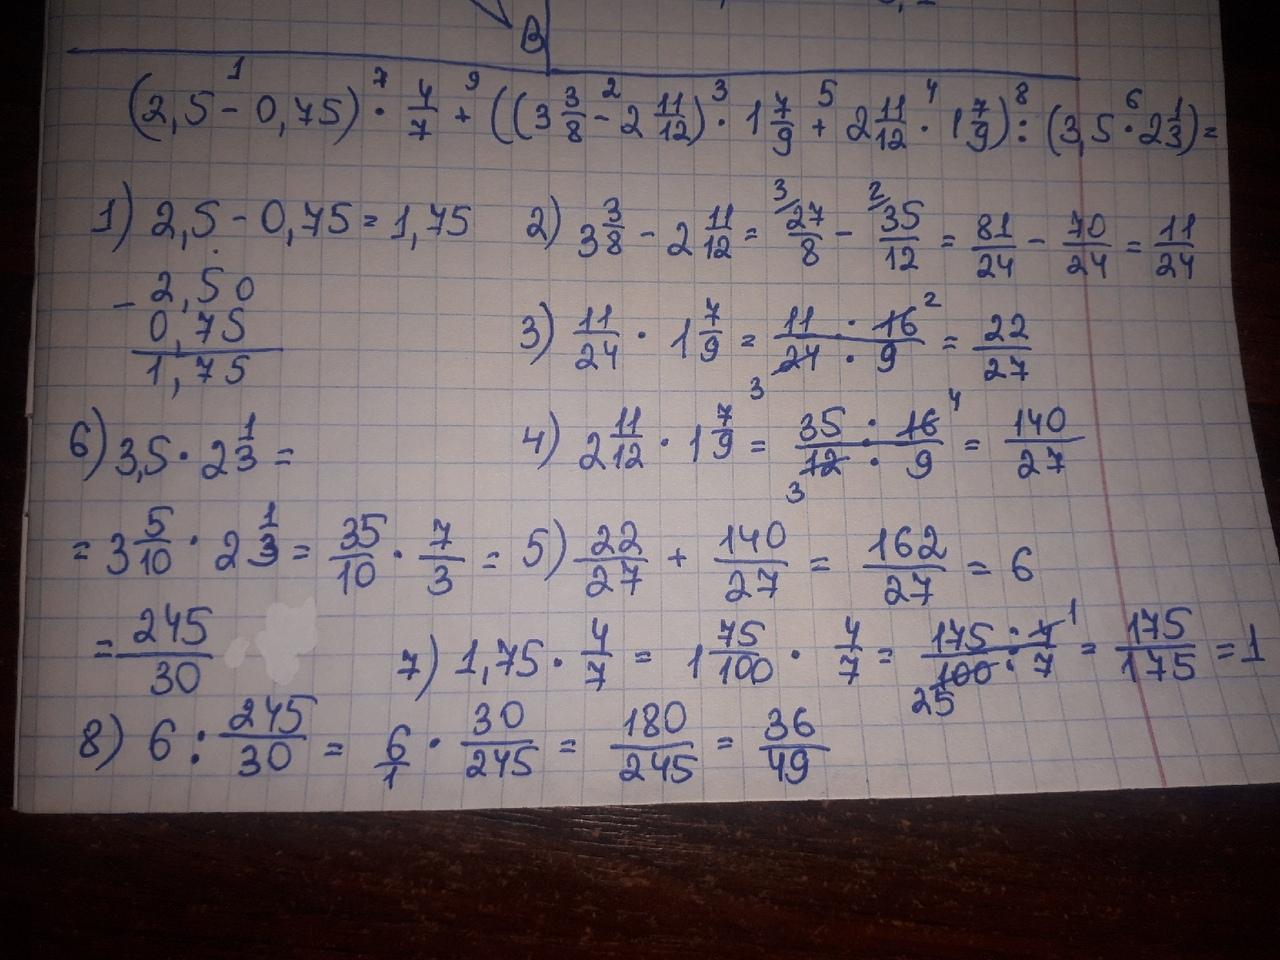 B
(2,5 - 0,75) · 4/7 + ((3 3/8 - 2 11/12) · 1 7/9 + 2 11/12 · 1 7/9) : (3,5 · 2 1/3) =
1) 2,5 - 0,75 = 1,75
- 2,50
0,75
1,75
2) 3 3/8 - 2 11/12 = 27/8 - 35/12 = 81/24 - 70/24 = 11/24
3) 11/24 · 1 7/9 = 11 · 16/24 · 9 = 22/27
4) 2 11/12 · 1 7/9 = 35 · 16/12 · 9 = 140/27
6) 3,5 · 2 1/3 =
= 3 5/10 · 2 1/3 = 35/10 · 7/3 =
= 245/30
5) 22/27 + 140/27 = 162/27 = 6
7) 1,75 · 4/7 = 1 75/100 · 4/7 = 175 · 4/100 · 7 = 175/175 = 1
8) 6 : 245/30 = 6/1 · 30/245 = 180/245 = 36/49